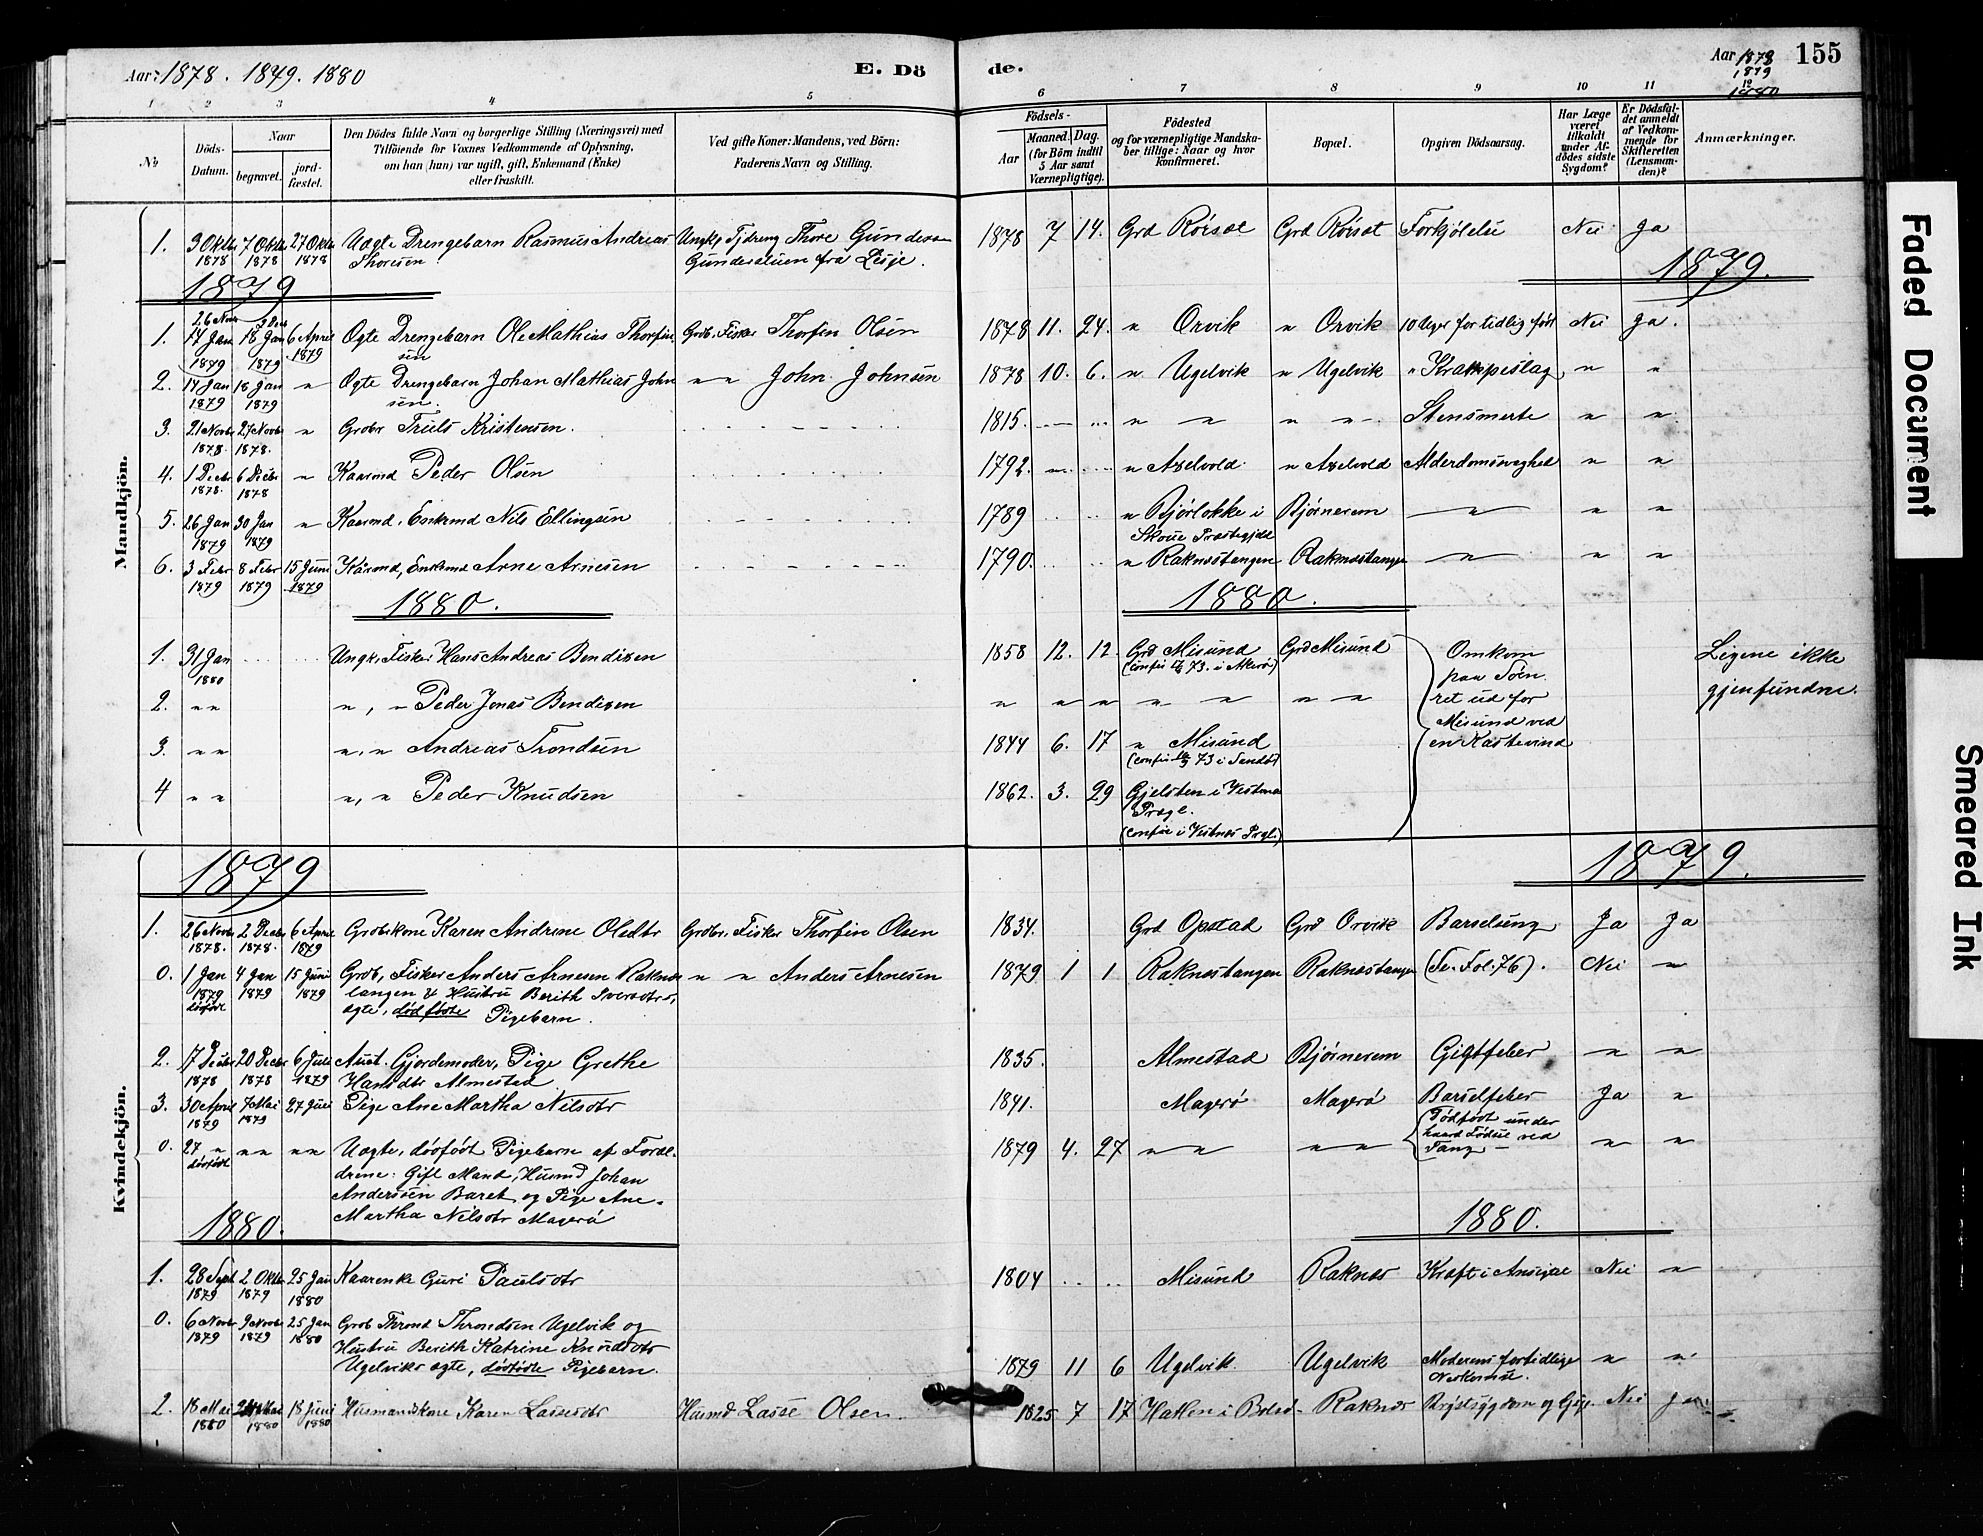 Aar: 1878. 1879. 1880
E. Dö
de.
Aar 1878
1879
1880
155
1 2 3 4 5 6 7 8 9 10 11
No
Döds-
Datum.
Naar
begravet.
jord-
fæstet.
Den Dödes fulde Navn og borgerlige Stilling (Næringsvei) med
Tilföiende for Voxnes Vedkommende af Oplysning,
om han (hun) var ugift, gift, Enkemand (Enke)
eller fraskilt.
Ved gifte Koner: Mandens, ved Börn:
Faderens Navn og Stilling.
Födsels-
Aar
Maaned. Dag.
(for Börn indtil
5 Aar samt
Værnepligtige).
Födested
og for værnepligtige Mandska-
ber tillige: Naar og hvor
konfirmeret.
Bopæl.
Opgiven Dödsaarsag.
Har Læge
været
tilkaldt
under Af-
dödes sidste
Sygdom?
Er Dödsfal-
det anmeldt
af Vedkom-
mende for
Skifteretten
(Lensman-
den)?
Anmærkninger.
Mandkjön.
1. 3 Oktbr 1878 7 Oktbr 1878 27 Oktbr 1878 Uægte Drengebarn Rasmus Andreas Ungkp Tjdreng Thore Gunders- 1878 7 14. Grd Rörset Grd Rörset Forkjölelse Nei Ja
Thoresen Gundersluen fra Lesje.
1879 1879.
26 Novbr 3 Decbr
1. 14 Jan 1879 18 Jan 1879 6 April 1879 Ægte Drengebarn Ole Mathias Thorfin- Grdbr. Fisker Thorfin Olsen 1878 11. 24. " Orvik " Orvik 10 Uger for tidlig född Nei Ja.
sen
2. 14 Jan 1879 18 Jan 1879 " Ægte Drengebarn Johan Mathias John " " John Johnsen 1878 10. 6. " Ugelvik " Ugelvik " Krampeslag " "
sen.
3. 21 Novbr 1878. 27 Novbr 1878. " Grdbr Truls Kristensen. 1815. " " " " Stensmerte " "
4. 1 Decbr 1878. 6 Decbr 1878 " Kaarmd Peder Olsen 1792. " Axelvold " Axelvold Alderdomssvaghed " "
5. 26 Jan 1879 30 Jan 1879 " Kaarmd, Enkemd Nils Ellingsen 1789 " Bjørlokke i Bjørnerem " " "
Skoue Præstegjeld
6. 3 Febr 1879 8 Febr 1879 15 Juni 1879 Kaarmd, Enkemd Arne Arnesen 1790. " Raknestangen Raknestangen " " "
1880. 1880.
1. 31 Jan 1880 Ungk. Fisker Hans Andreas Bendixen 1858 12. 12. Grd Misund Grd Misund Omkom Ligene ikke
paa Söen gjenfundne.
2. " " ", " Peder Jonas Bendixen " " " " " " " ret ud for
Misund ved
3. " " ", " Andreas Trondsen 1844 6. 17 " Misund en Kastevind
4 " " ", " Peder Knudsen 1862. 3. 29 Gjelsten i Vestnes
Prægl.
(confir i Vestnes Prgl.)
Kvindekjön.
1879 1879.
1. 26 Novbr 1878. 2 Decbr 1878. 6 April 1879 Grdbrkone Karen Andrine Olsdtr Grdbr. Fisker Thorfin Olsen 1834. Grd Opstad Grd Orvik Barselseng Ja Ja
0. 1 Jan 1879 dödfödt 4 Jan 1879 15 Juni 1879 Grdb, Fisker Anders Arnesen Raknes- " " Anders Arnesen 1879 1 1 Raknestangen Raknestangen (Se Fol: 76). Nei "
tangen & Hustru Berith Iversdtrs,
ægte, dödfödte Pigebarn.
2. 7 Decbr 1878 20 Decbr 1878 6 Juli 1879 Aut. Gjordemoder, Pige Grethe 1835. Almestad Bjørnerem Gigtfeber " "
Hansdtr Almestad
3. 30 April 1879 7 Mai 1879 27 Juli Pige Ane Martha Nilsdtr 1841. Magerö Magerö Barselfeber Ja "
0. 27 " dödfödt " " " " Uægte, dödfödt Pigebarn af Foræl- 1879 4. 27 " " " " Dödfödt under " "
drene: Gift Mand, Husmd Johan haard Födsel ved
Anderssen Baret og Pige Ane Tang
Martha Nilsdtr Magerö
1880. 1880.
1. 28 Sept 1879 2 Oktbr 1879 25 Jan 1880 Kaarenke Guri Paulsdtr 1804 Misund Raknes Kræft i Ansigtet Nei "
0. 6 Novbr 1879 9 Novbr 1879 25 Jan 1880 Grdb Thrond Throndsen Ugelvik og
Hustru Berith Katrine Knudsdtr
Ugelviks ægte, dödfödte Pigebarn. 1879 11 6 Ugelvik Ugelvik Moderens fortidlige " "
Nedkomst.
2. 18 Mai 1880 1880 18 Juni 1880 Husmandskone Karen Lassesdtr Husmd Lasse Olsen 1825 7 17 Hatlen i Bolsö Raknes Brystsygdom og Gigt Nei Ja
Faded Document
Smeared Ink